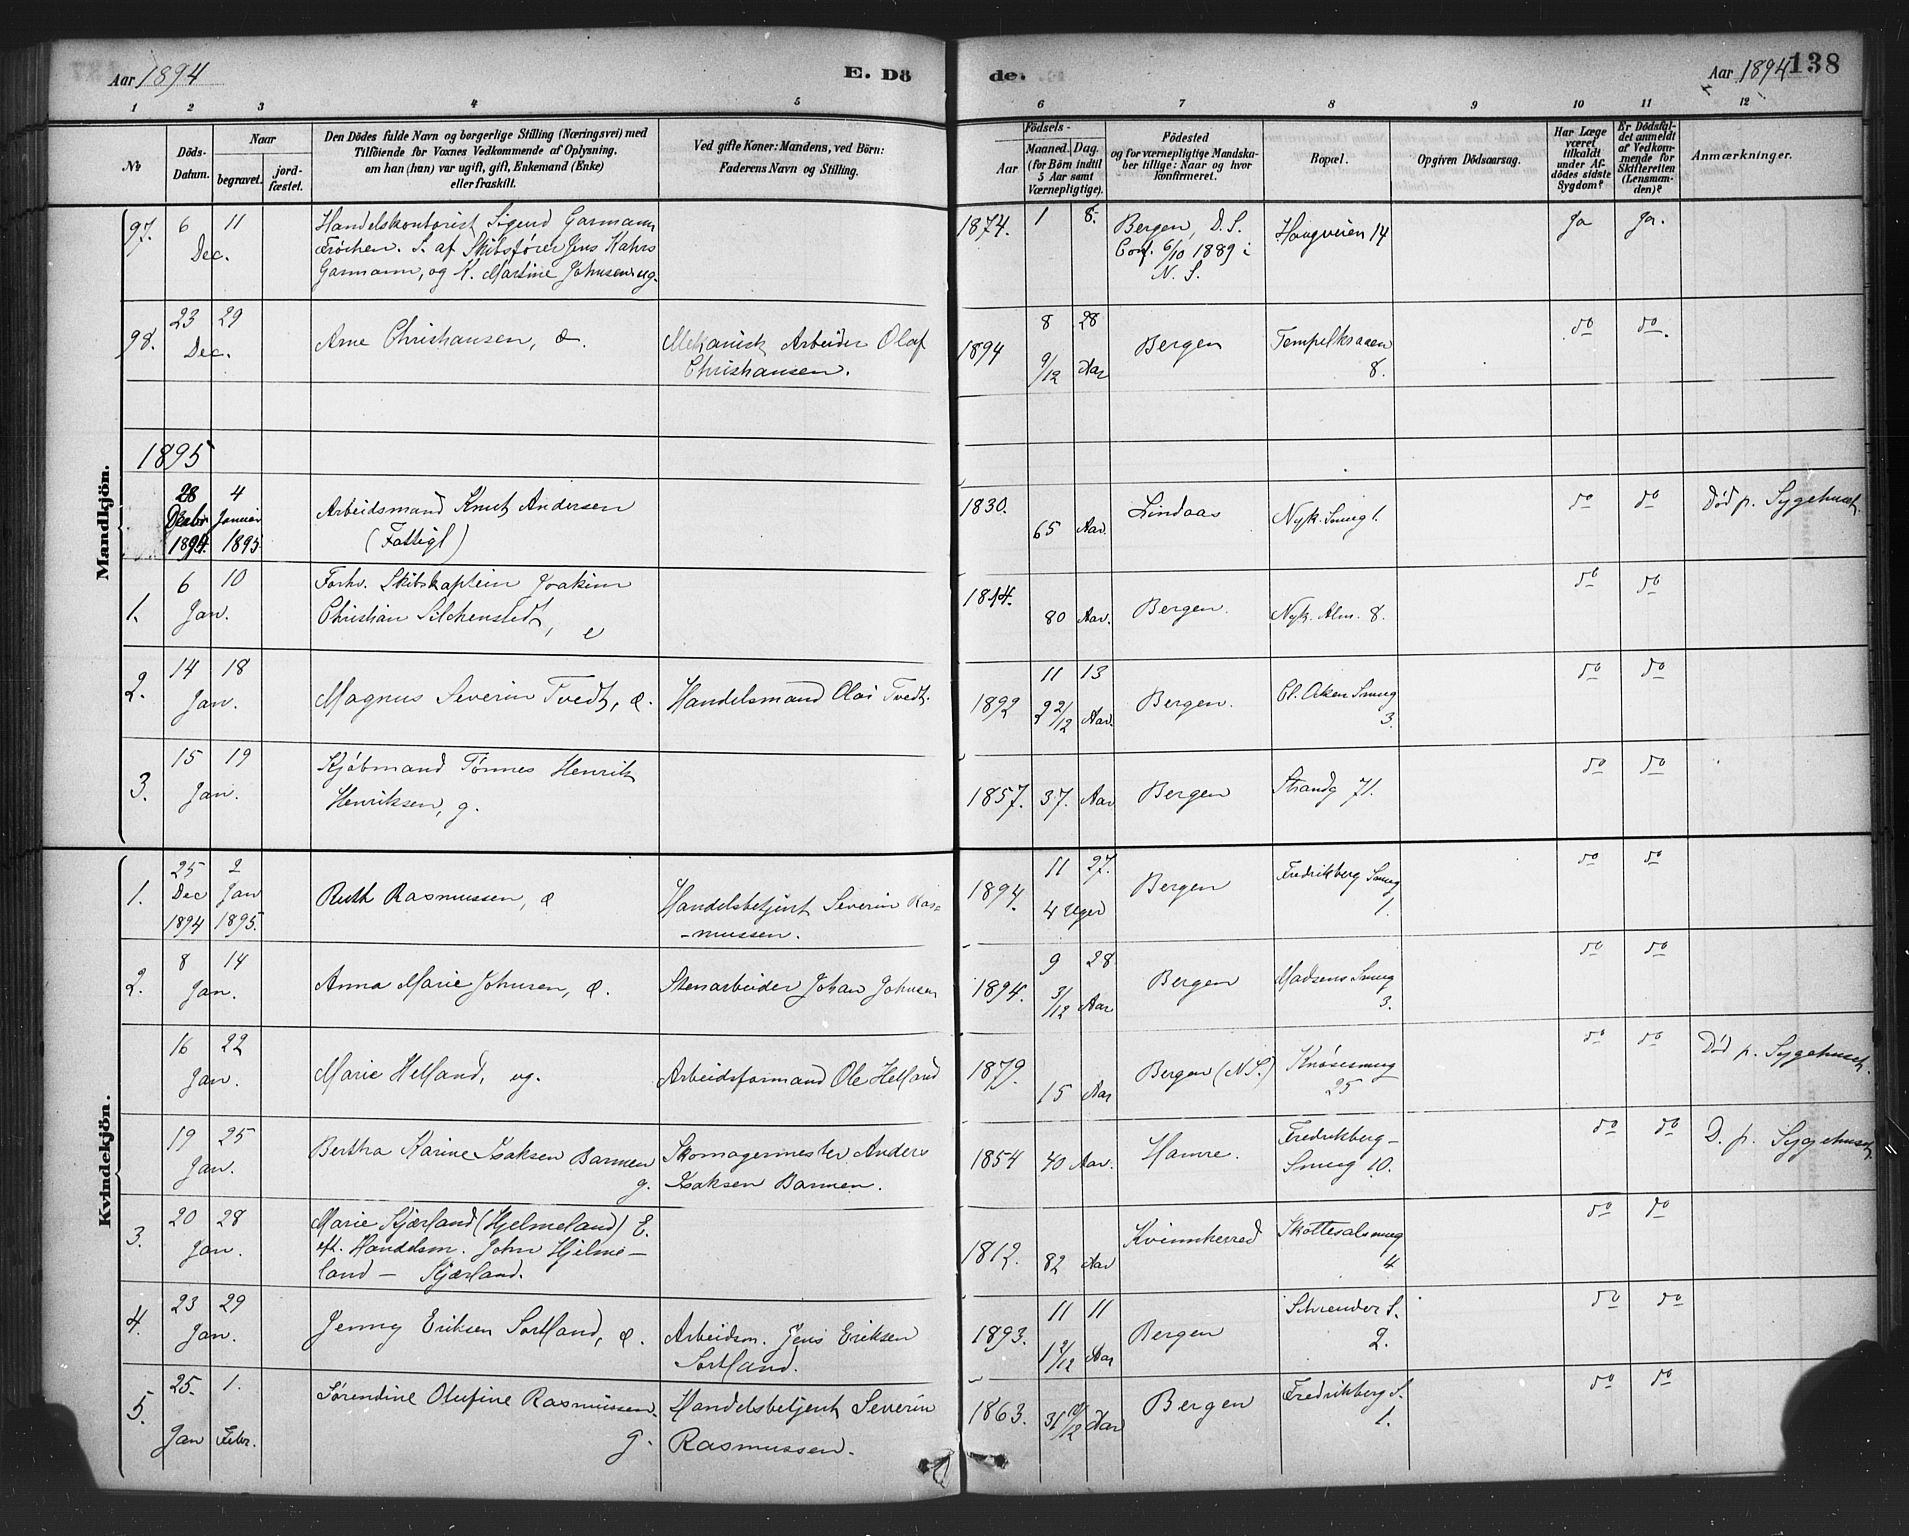 Aar 1894 E. Dö de. Aar 1894 138
1 2 3 4 5 6 7 8 9 10 11 12
No
Döds-Datum.
Naar
begravet.
jord-fæstet.
Den Dödes fulde Navn og borgerlige Stilling (Næringsvei) med
Tilföiende for Voxnes Vedkommende af Oplysning.
om han (hun) var ugift, gift, Enkemand (Enke)
eller fraskilt.
Ved gifte Koner: Mandens, ved Börn:
Faderens Navn og Stilling.
Födsels-
Aar
Maaned. Dag.
(for Börn indtil
5 Aar samt
Værnepligtige).
Födested
og for værnepligtige Mandska-
ber tillige: Naar og hvor
konfirmeret.
Bopæl.
Opgiven Dödsaarsag.
Har Læge
været
tilkaldt
under Af-
dödes sidste
Sygdom?
Er Dödsfal-
det anmeldt
af Vedkom-
mende for
Skifteretten
(Lensman-
den)?
Anmærkninger.
Mandkjön.
97. 6 11 Handelskontorist Sigurd Garmann 1874. 1 8. Bergen, D. S. Haugveien 14 Ja Ja.
Dec. Frøchen. S. af Skibsfører Jens Kahrs Conf. 6/10 1889 i
Garmann, og H. Martine Johnsen ug. N. S.
98. 23 29 Arne Christiansen, æ. Mekanisk Arbeider Olaf 1894 8 28 Bergen do do
Dec. Christiansen. 9/12 Aar 8.
1895
28 4 Arbeidsmand Knut Andersen 1830. Lindaas Nyk. Smug 1. do do Død p. Sygehuset.
Decbr Januar (Fattigl) 65 Aar.
1894. 1895.
1. 6 10 Forhv. Skibskaptein Joakim 1814. Bergen. Nyk. Alm. 8. do do
Jan. Christian Silchenstedt, e 80 Aar.
2. 14 18 Magnus Severin Tvedt, æ. Handelsmand Olai Tvedt. 1892 11 13 Bergen. do do
Jan. 2 2/12 Aar. 3.
3. 15 19 Kjøbmand Tønnes Henrik 1857. 37. Aar Bergen Strandg 71. do do
Jan. Henriksen, g.
Kvindekjön.
1. 25 2 Ruth Rasmussen, æ Handelsbetjent Severin Ras- 1894. 11 27. Bergen Fredrikberg Smug do do
Dec Jan -mussen. 4 Uger 1.
1894 1895.
2. 8 14 Anna Marie Johnsen, æ. Stenarbeider Johan Johnsen 1894. 9 28 Bergen Madsens Smug do do
Jan. 3/12 Aar 3.
16 22 Marie Helland, ug. Arbeidsformand Ole Helland 1879. Bergen (N.S.) Knøsesmug do do Død p. Sygehuset.
Jan. 15 Aar 25
19 25 Bertha Karine Isaksen Barmen Skomagermester Anders 1854 40 Aar. Hamre. Fredrikberg- do do D. p. Sygehuset.
Jan. g. Isaksen Barmen. Smug 10.
3. 20 28 Marie Kjærland (Hjelmeland) E. 1812. 82 Aar Kvinnherred Skottesalsmug do do
Jan. eft. Handelsm. John Hjelme- 4
land - Kjærland.
4. 23 29 Jenny Eriksen Sortland, æ. Arbeidsm. Jens Eriksen 1893. 11 11 Bergen do do
Jan. Sortland. 1 2/12 Aar 2.
5. 25. 1. Sørendine Olufine Rasmussen. Handelsbetjent Severin 1863. 31 Aar Bergen Fredrikberg S. do do
Jan Febr. g. Rasmussen. 1.